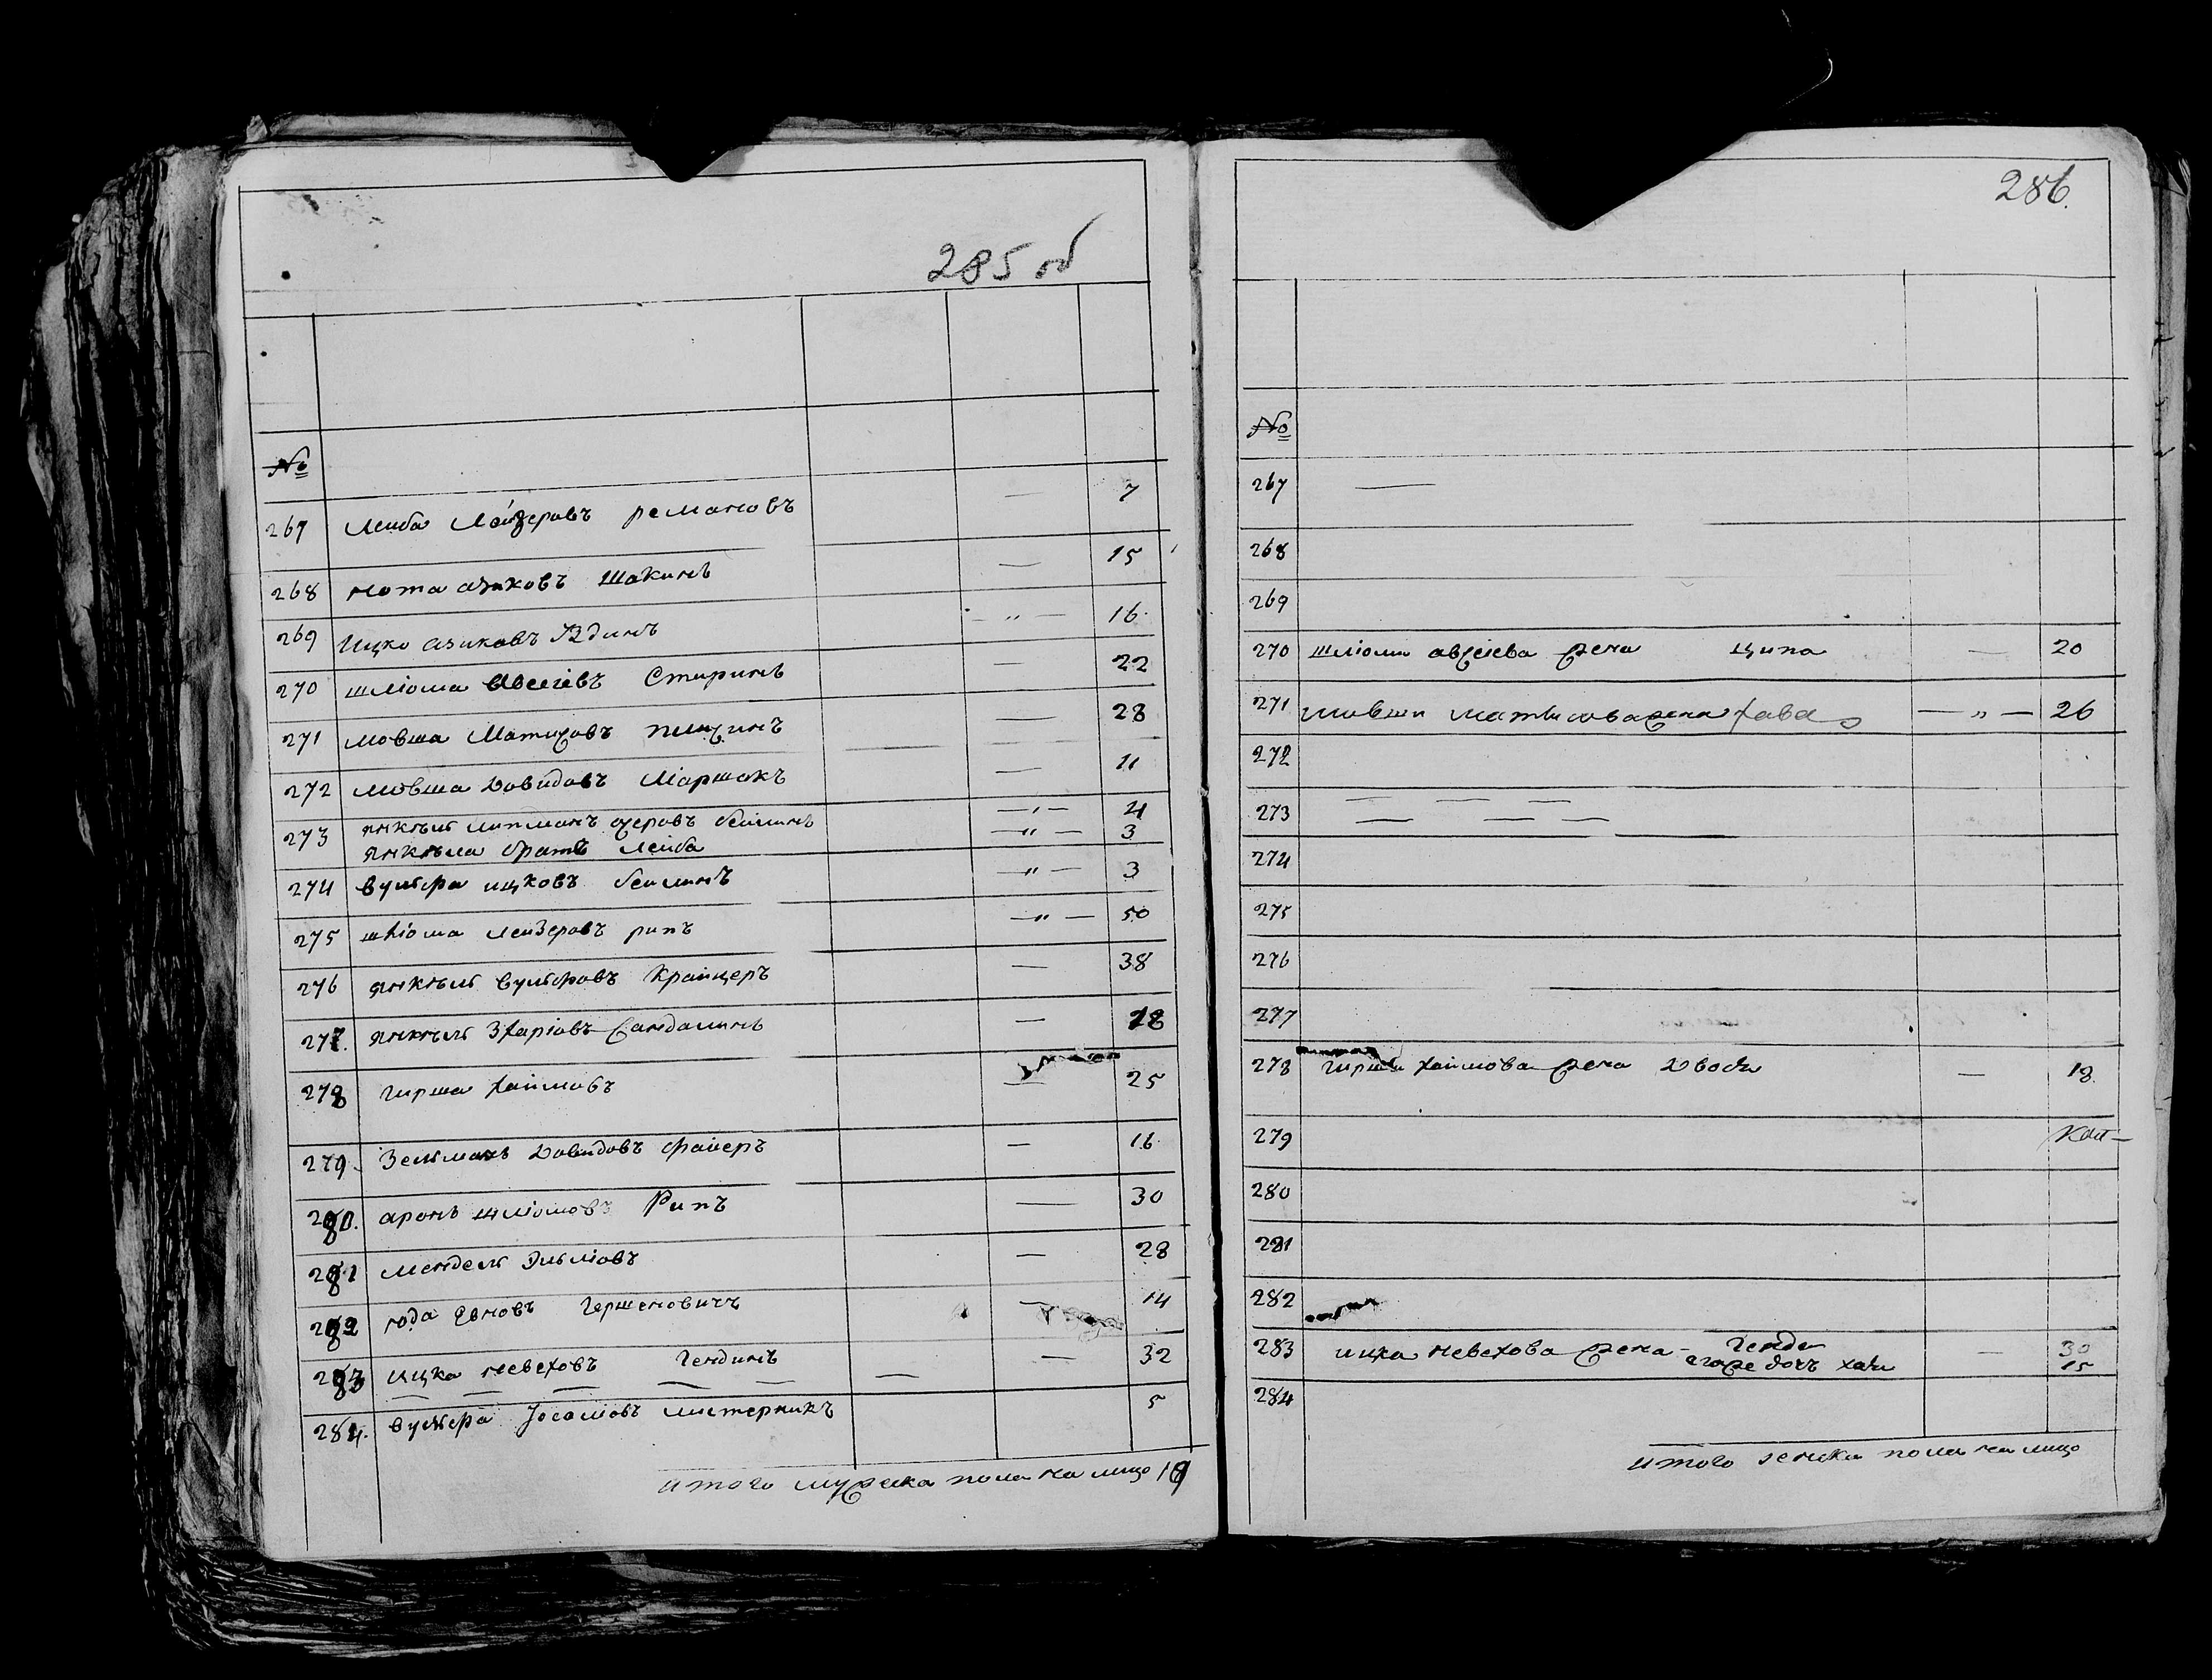 285 об
№
267 Леиба Лаизеровъ ремановъ — 7
268 нота азиковъ Шакинъ — 15
269 Ицко азиковъ Юдинъ — " — 16
270 шліома Овсеіевъ Стиринъ — 22
271 мовша Матисовъ — 28
272 мовша Довидовъ Маршакъ — 11
273 янкель липманъ озеровъ беилинъ — " — 4
янкеля братъ Леиба — " — 3
274 вульфа ицковъ беилинъ — " — 3
275 шліома леизеровъ рипъ — " — 50
276 янкель вульфовъ Крайцеръ — 38
277. янкель Захаріовъ Сандалинъ — 18
278 гирша хаимовъ — 25
279. Зельманъ Довидовъ файеръ — 16
280. аронъ шліомовъ Рипъ — 30
281 мендель — 28
282 іода Евновъ Гершеновичъ — 14
283 ицка невеховъ Гендинъ — 32
284. вульфа Іосаіовъ 5
итого мужеска пола на лицо 19
286.
№
267 —
268
269
270 шліомы авсеіева жена ципа — 20
271 мовши матисова жена хава — " — 26
272
273 — — —
— — —
274
275
276
277
278 гирши хаимова жена Двося — 18
279
280
281
282
283 ицка невехова жена - Генда — 30
егоже дочь хая 15
284
итого женска пола на лицо